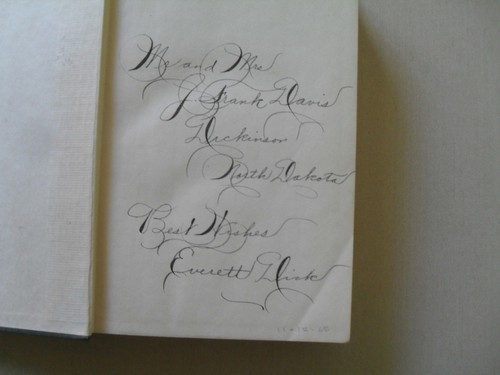 Mr and Mrs
J Frank Davis
Dickinson
North Dakota
Best Wishes
Everett Dick